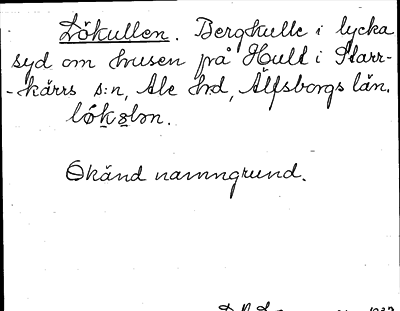 Lökullen. Bergkulle i lycka
syd om husen på Hult i Starr-
-kärrs s:n, Ale hd, Älfsborgs län.
lo᷄kɷlən.
Okänd namngrund.